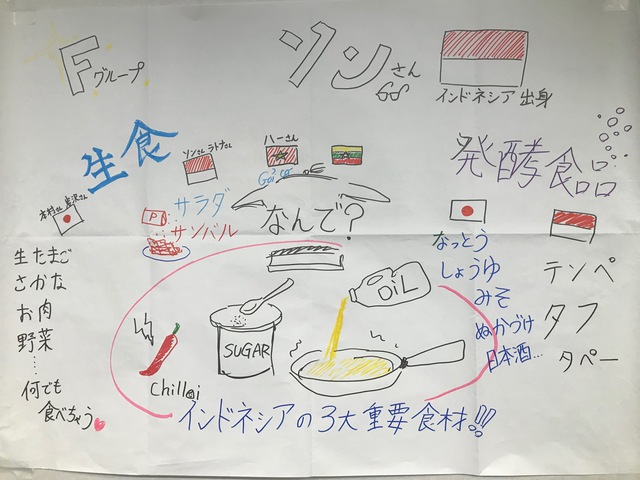 Fグループ
ソンさん
インドネシア出身
生食
ソンさん ラトナさん
ハーさん
Gỏi cá
サラダ
サンバル
なんで?
発酵食品
生たまご
さかな
お肉
野菜
何でも
食べちゃう
なっとう
しょうゆ
みそ
ぬかづけ
日本酒...
テンペ
タフ
タペー
OIL
SUGAR
Chilli
インドネシアの3大重要食材!!!